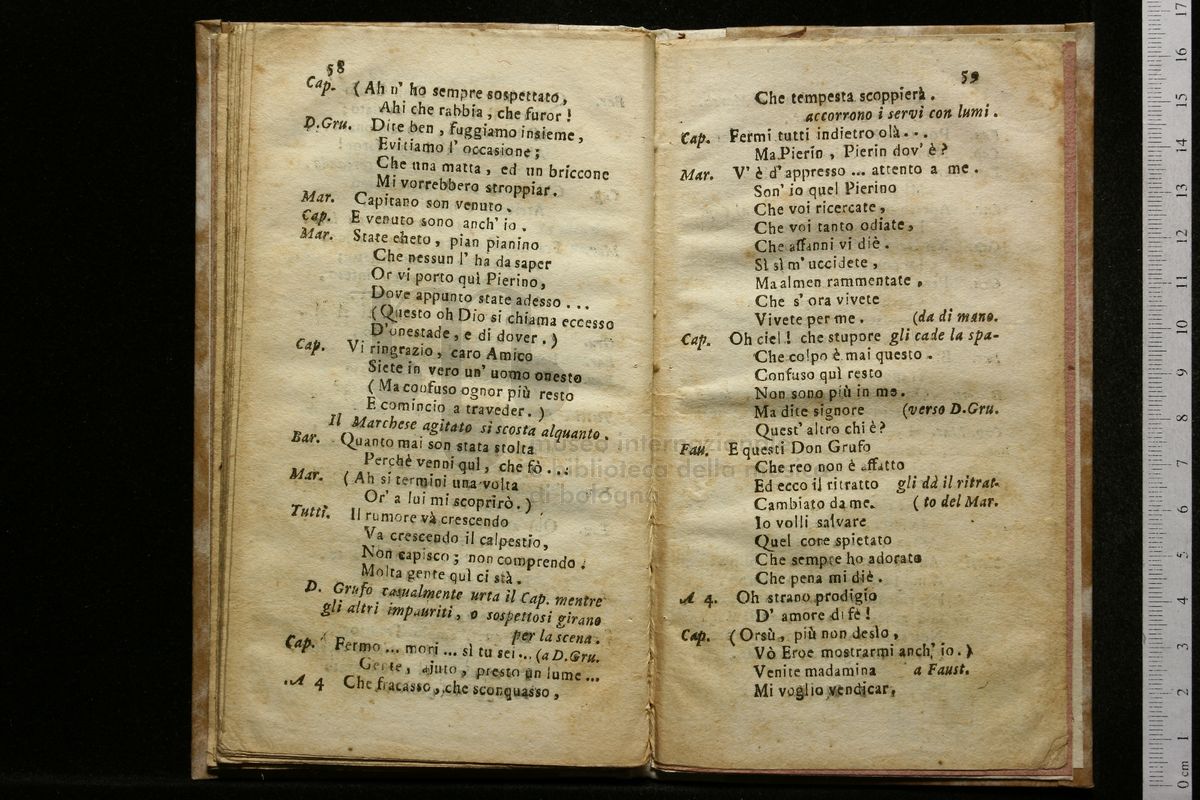 58
Cap. (Ah n' ho sempre sospettato,
Ahi che rabbia, che furor!
D.Gru. Dite ben, fuggiamo insieme,
Evitiamo l' occasione;
Che una matta, ed un briccone
Mi vorrebbero stroppiar.
Mar. Capitano son venuto.
Cap. E venuto sono anch' io.
Mar. State cheto, pian pianino
Che nessun l' ha da saper
Or vi porto quì Pierino,
Dove appunto state adesso ...
(Questo oh Dio si chiama eccesso
D'onestade, e di dover.)
Cap. Vi ringrazio, caro Amico
Siete in vero un' uomo onesto
(Ma confuso ognor più resto
E comincio a traveder.)
Il Marchese agitato si scosta alquanto.
Bar. Quanto mai son stata stolta
Perchè venni quì, che fò ...
Mar. (Ah si termini una volta
Or' a lui mi scoprirò.)
Tutti. Il rumore và crescendo
Va crescendo il calpestio,
Non capisco; non comprendo.
Molta gente quì ci stà.
D. Grufo casualmente urta il Cap. mentre
gli altri impauriti, o sospettosi girano
per la scena.
Cap. Fermo ... mori ... sì tu sei ... (a D.Gru.
Gente, ajuto, presto un lume ...
A 4 Che fracasso, che sconquasso,
59
Che tempesta scoppierà.
accorrono i servi con lumi.
Cap. Fermi tutti indietro olà ...
Ma Pierin, Pierin dov' è?
Mar. V' è d' appresso ... attento a me.
Son' io quel Pierino
Che voi ricercate,
Che voi tanto odiate,
Che affanni vi diè.
Sì sì m' uccidete,
Ma almen rammentate,
Che s' ora vivete
Vivete per me. (da di mano.
Cap. Oh ciel! che stupore gli cade la spa-
Che colpo è mai questo.
Confuso quì resto
Non sono più in me.
Ma dite signore (verso D.Gru.
Quest' altro chi è?
Fau. E questi Don Grufo
Che reo non è affatto
Ed ecco il ritratto gli dà il ritrat-
Cambiato da me. (to del Mar.
Io volli salvare
Quel core spietato
Che sempre ho adorato
Che pena mi diè.
A 4. Oh strano prodigio
D' amore di fè!
Cap. (Orsù, più non deslo,
Vò Eroe mostrarmi anch' io.)
Venite madamina a Faust.
Mi voglio vendicar,
museo internazionale
biblioteca della musica
di bologna
0 cm 1 2 3 4 5 6 7 8 9 10 11 12 13 14 15 16 17